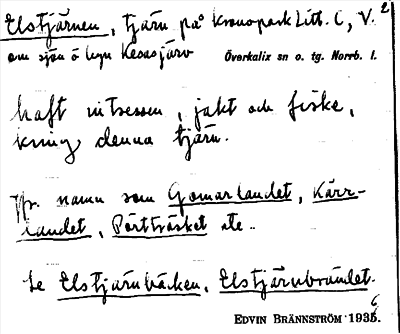 2
Elstjärnen, tjärn på kronopark Litt. C, V.
om sjön ö byn Kesasjärv Överkalix sn o. tg. Norrb. l.
haft intressen, jakt och fiske,
kring denna tjärn.
Jfr. namn som Gomarlandet, Kärr-
landet, Pörtträsket etc..
Se Elstjärnbäcken, Elstjärnbrändet.
EDVIN BRÄNNSTRÖM 1936.